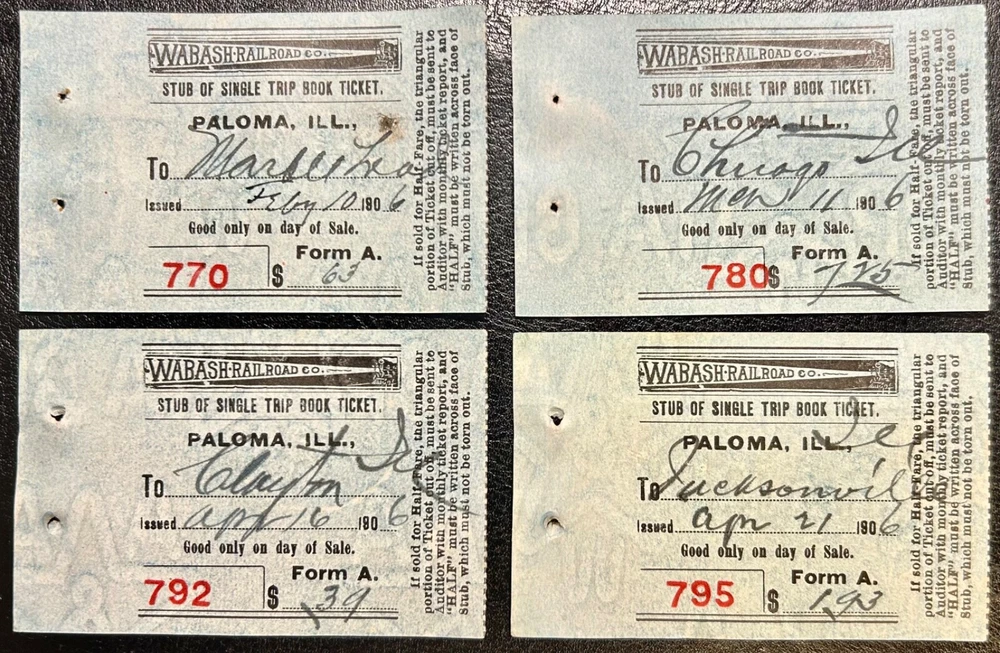 WABASH-RAILROAD CO.
STUB OF SINGLE TRIP BOOK TICKET.
PALOMA, ILL.,
To
Issued Feby 10 1906
Good only on day of Sale.
Form A.
770 $ 63
If sold for Half-Fare, the triangular
portion of Ticket cut off, must be sent to
Auditor with monthly ticket report, and
"HALF" must be written across face of
Stub, which must not be torn out.
WABASH-RAILROAD CO.
STUB OF SINGLE TRIP BOOK TICKET.
PALOMA, ILL.,
To Chicago Ill
Issued Mch 11 1906
Good only on day of Sale.
Form A.
780 $ 725
If sold for Half-Fare, the triangular
portion of Ticket cut off, must be sent to
Auditor with monthly ticket report, and
"HALF" must be written across face of
Stub, which must not be torn out.
WABASH-RAILROAD CO.
STUB OF SINGLE TRIP BOOK TICKET.
PALOMA, ILL.,
To Clayton Ill
Issued Apr 16 1906
Good only on day of Sale.
Form A.
792 $ .39
If sold for Half-Fare, the triangular
portion of Ticket cut off, must be sent to
Auditor with monthly ticket report, and
"HALF" must be written across face of
Stub, which must not be torn out.
WABASH-RAILROAD CO.
STUB OF SINGLE TRIP BOOK TICKET.
PALOMA, ILL.,
To Jacksonvill Ill
Issued Apr 21 1906
Good only on day of Sale.
Form A.
795 $ 1.93
If sold for Half-Fare, the triangular
portion of Ticket cut off, must be sent to
Auditor with monthly ticket report, and
"HALF" must be written across face of
Stub, which must not be torn out.